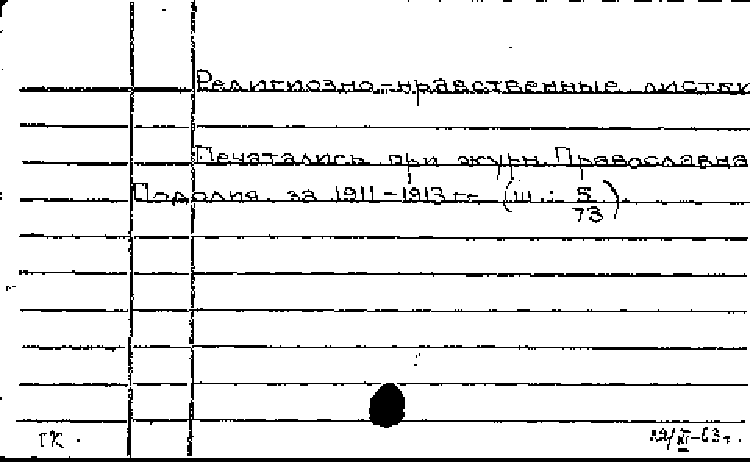 Религиозно-нравственные листки
Печатались при журн. Православна
Подолия. за 1911-1913 гг. (ш. : 5/73).
ГК.
12/XI-63 г.